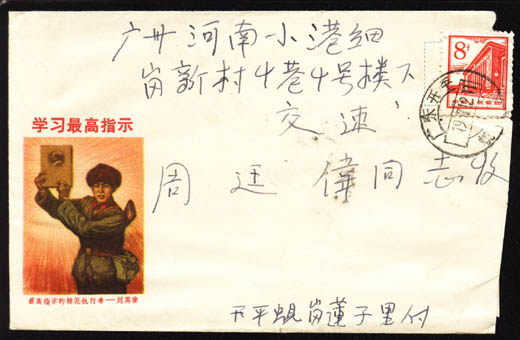 广州河南小港细
岗新村4巷4号楼下
交速
周廷偉同志收
学习最高指示
最高指示的模范执行者——刘英俊
开平蚬岗莲子里付
8
广东开平